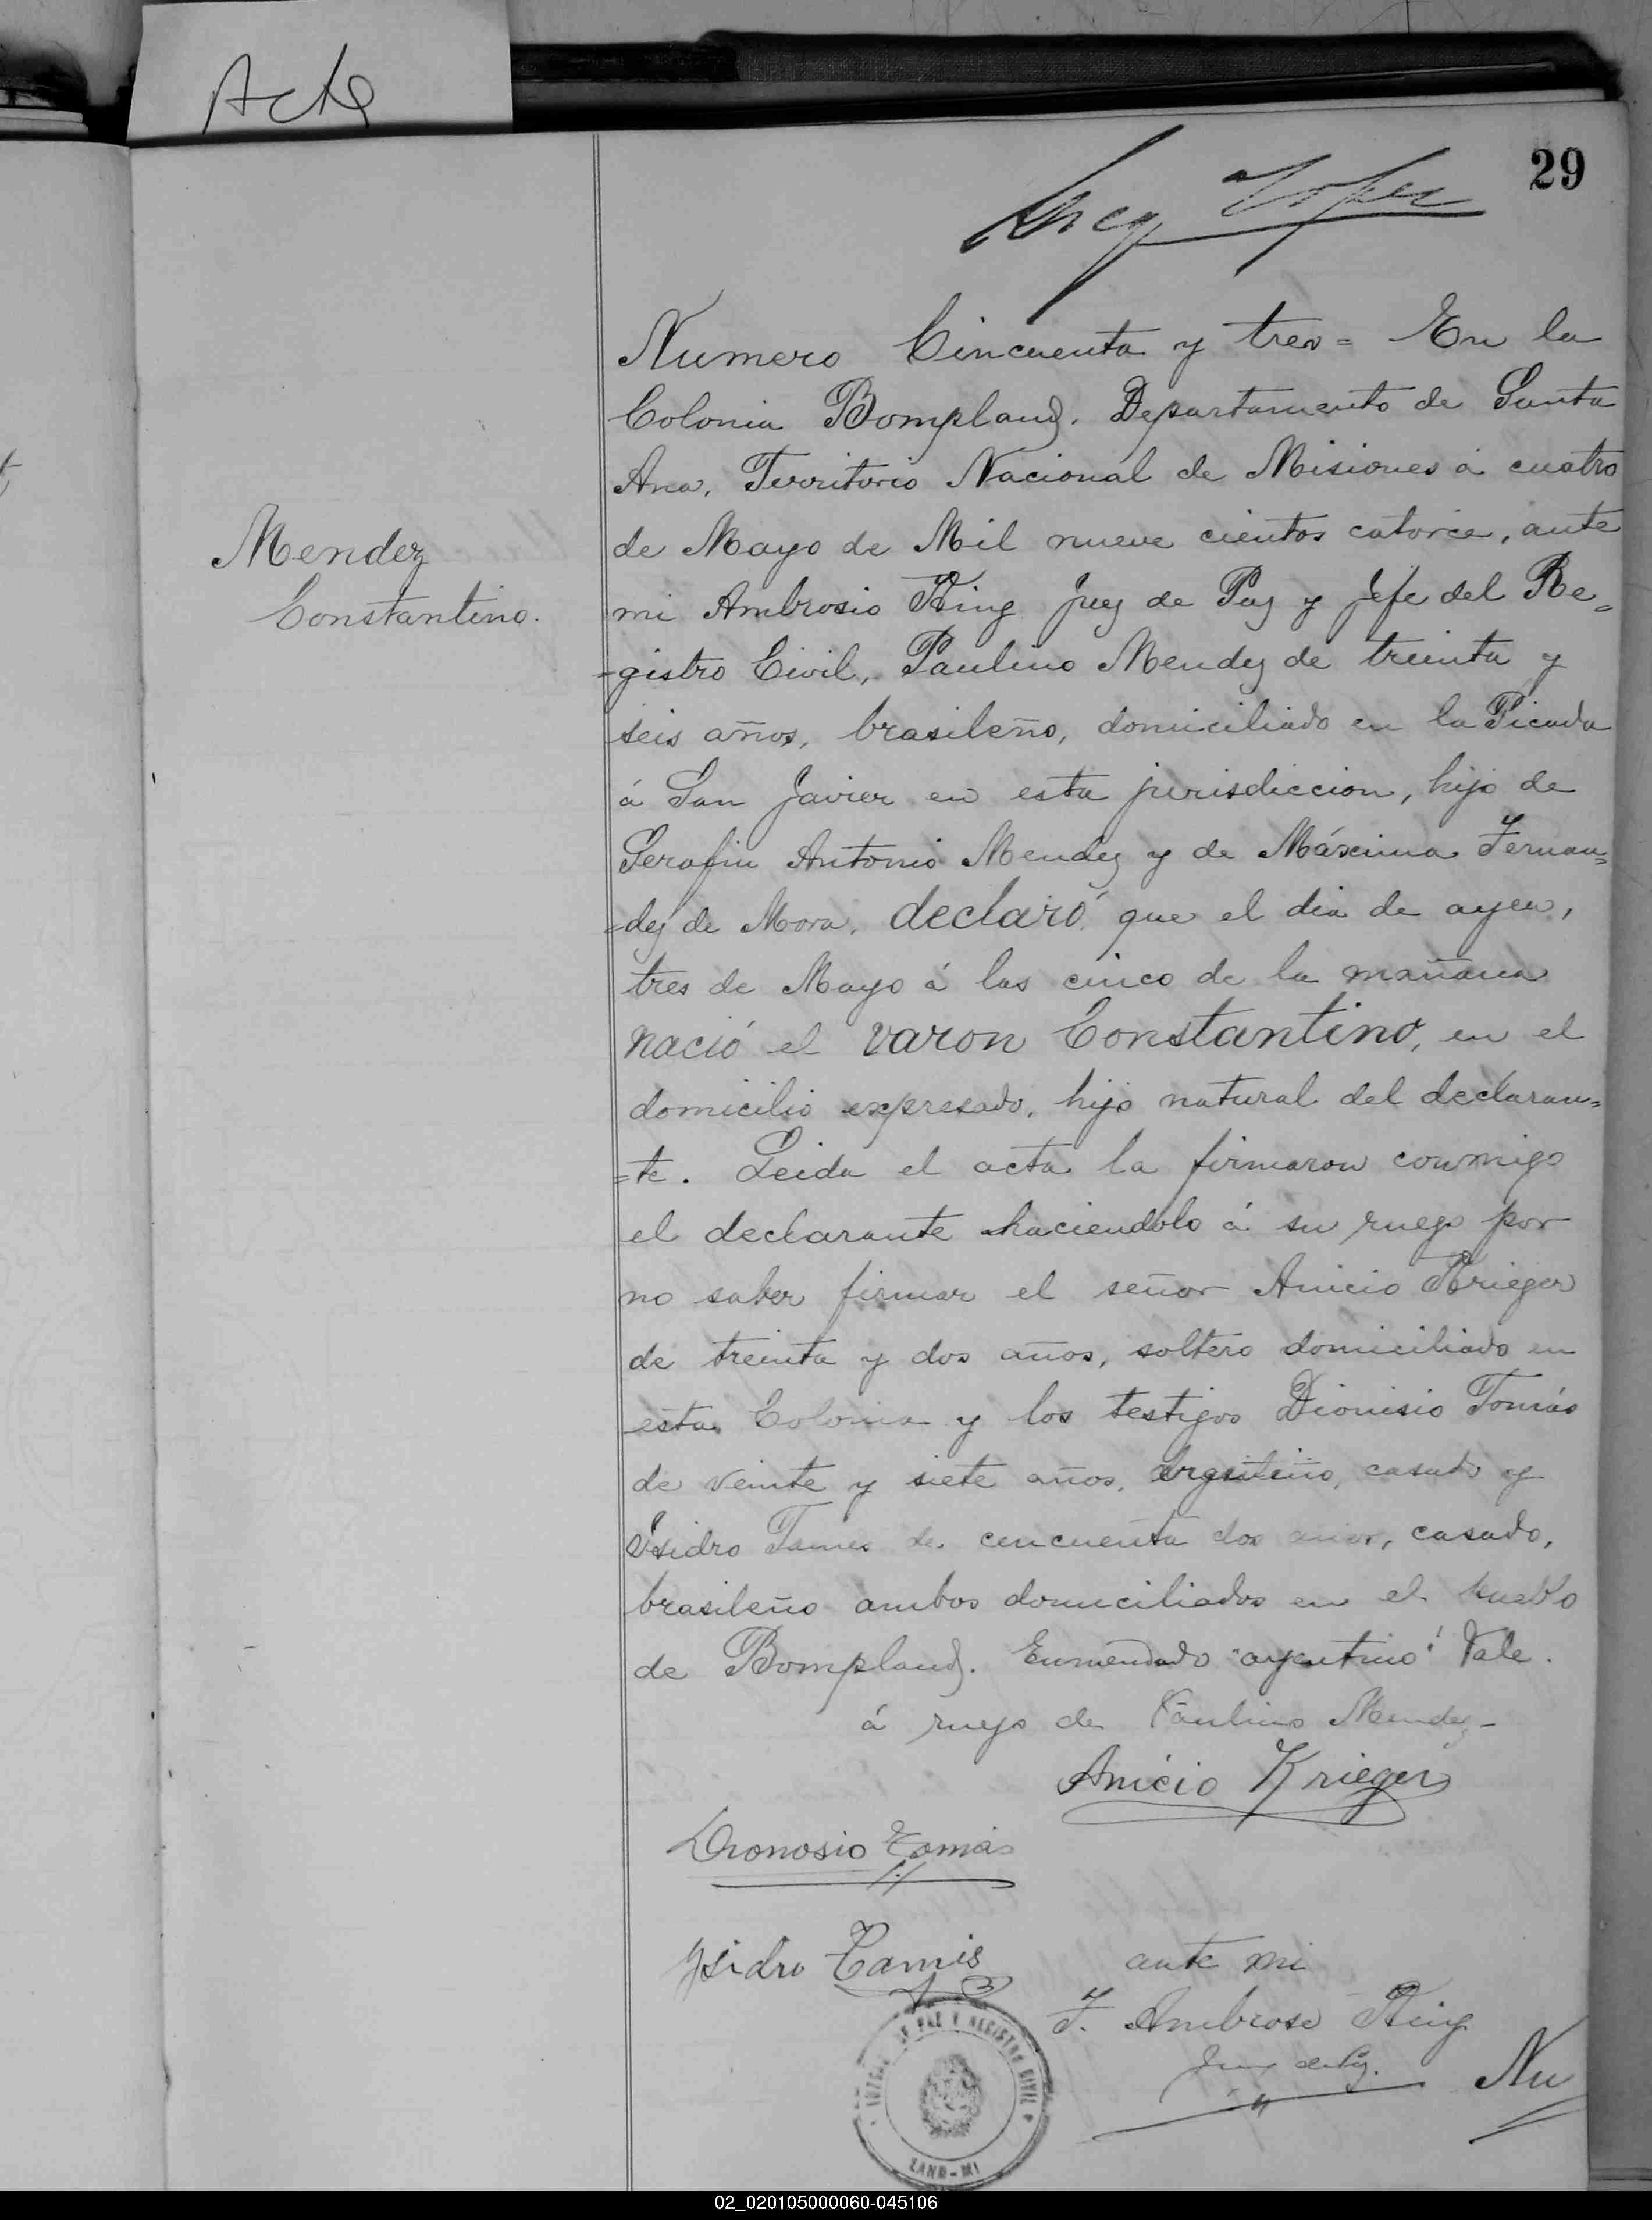 Acta
29
Numero Cincuenta y tres = En la
Colonia Bompland. Departamento de Santa
Ana. Territorio Nacional de Misiones á cuatro
Mendez
Constantino.
de Mayo de Mil nueve cientos catorce, ante
mi Ambrosio King Juez de Paz y Jefe del Re=
=gistro Civil, Paulino Mendez de treinta y
seis años, brasileño, domiciliado en la Picada
á San Javier en esta jurisdiccion, hijo de
Serafin Antonio Mendez y de Máxima Fernan=
=dez de Mora, declaró que el dia de ayer,
tres de Mayo á las cinco de la mañana
nació el varon Constantino, en el
domicilio expresado, hijo natural del declaran=
=te. Leida el acta la firmaron conmigo
el declarante haciendolo á su ruego por
no saber firmar el señor Anicio Krieger
de treinta y dos años, soltero domiciliado en
esta Colonia y los testigos Dionisio Tomás
de veinte y siete años, argentino, casado y
Isidro Tames de cincuenta dos años, casado,
brasileño ambos domiciliados en el pueblo
de Bompland. Enmendado "argentino" Vale.
á ruego de Paulino Mendez -
Anicio Krieger
Dionosio Tomás
Isidro Tamis
ante mi
F. Ambrose King
Juez de Paz.
Nu
JUZGADO DE PAZ Y REGISTRO CIVIL
LAND - MI
02_020105000060-045106